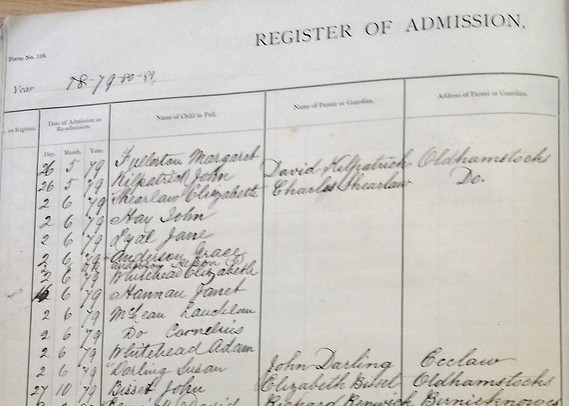 REGISTER OF ADMISSION,
Form No. 118.
Year 78-79 80-81,
on Register. Date of Admission or Re-admission. Name of Child in Full. Name of Parent or Guardian. Address of Parent or Guardian.
Day. Month. Year.
26 5 79 Fullerton Margaret
26 5 79 Kilpatrick John David Kilpatrick Oldhamstocks
2 6 79 Shearlaw Elizabeth Charles Shearlaw Do.
2 6 79 Hay John
2 6 79 Lyal Jane
2 6 79 Anderson Grace
Anderson
2 6 79 Whitehead Elizabeth
6 79 Hannan Janet
2 6 79 McLean Lauchlan
2 6 79 Do Cornelius
2 6 79 Whitehead Adam
2 6 79 Darling Susan John Darling Ecclaw
27 10 79 Bisset John Elizabeth Bisset Oldhamstocks
David Richard Renwick Birnieknowes